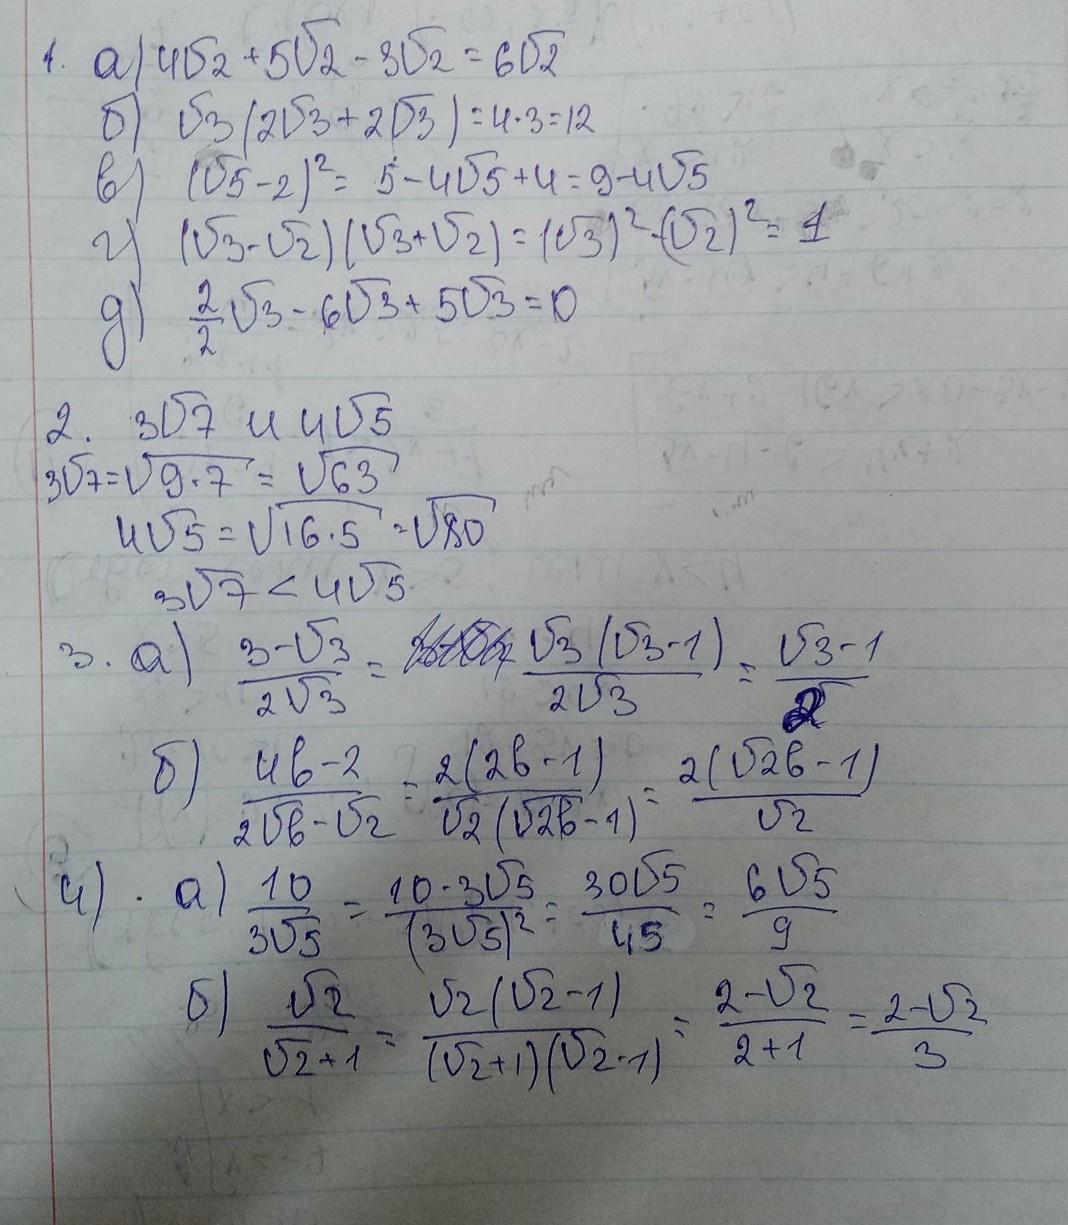 1. а) 4√2 + 5√2 - 3√2 = 6√2
б) √3 (2√3 + 2√3) = 4·3 = 12
в) (√5 - 2)² = 5 - 4√5 + 4 = 9 - 4√5
г) (√3 - √2)(√3 + √2) = (√3)² - (√2)² = 1
д) 2/2 √3 - 6√3 + 5√3 = 0
2. 3√7 и 4√5
3√7 = √9·7 = √63
4√5 = √16·5 = √80
3√7 < 4√5
3. а) (3 - √3)/(2√3) = √3 (√3 - 1)/(2√3) = (√3 - 1)/2
б) (4b - 2)/(2√b - √2) = 2(2b - 1)/(√2 (√2b - 1)) = 2(√2b - 1)/√2
4) . а) 10/(3√5) = 10·3√5/(3√5)² = 30√5/45 = 6√5/9
б) √2/(√2 + 1) = √2 (√2 - 1)/((√2 + 1)(√2 - 1)) = (2 - √2)/(2 + 1) = (2 - √2)/3